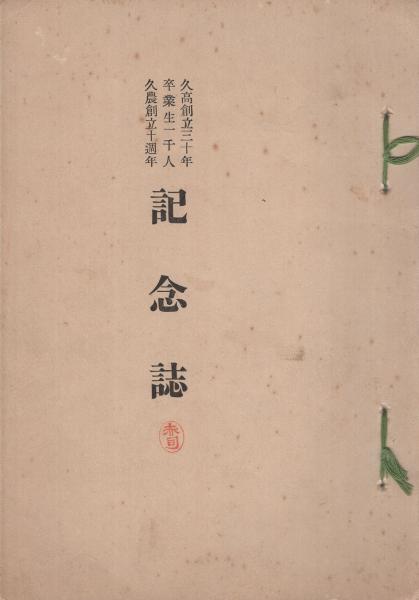 久高創立三十年
卒業生一千人
久農創立十週年
記念誌